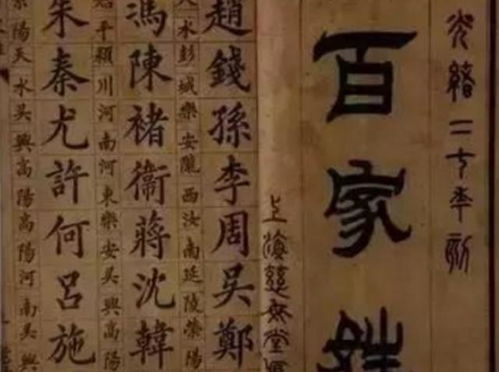 光緒二十年刻
百家姓
上海慈母堂
趙錢孫李周吳鄭
天水彭城樂安隴西汝南延陵滎陽
馮陳褚衛蔣沈韓
平潁川河南河東樂安吳興
朱秦尤許何呂施
陽天水吳興高陽高陽河南吳興